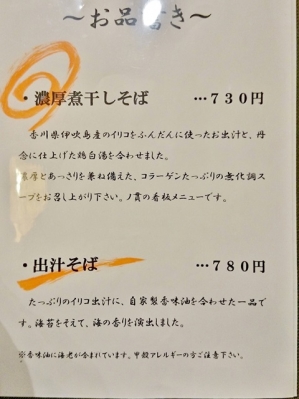 〜お品書き〜
・濃厚煮干しそば …730円
香川県伊吹島産のイリコをふんだんに使ったお出汁と、丹
念に仕上げた鶏白湯を合わせました。
濃厚とあっさりを兼ね備えた、コラーゲンたっぷりの無化調ス
ープをお召し上がり下さい。ノ貫の看板メニューです。
・出汁そば …780円
たっぷりのイリコ出汁に、自家製香味油を合わせた一品で
す。海苔をそえて、海の香りを演出しました。
※香味油に海老が含まれています。甲殻アレルギーの方ご注意下さい。